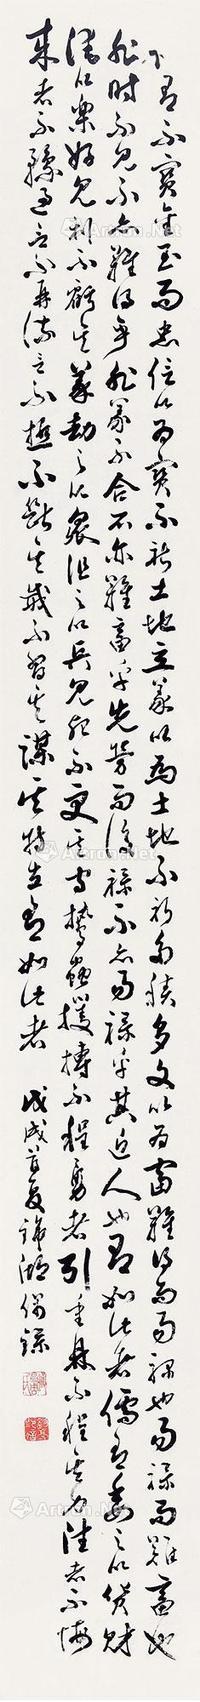 有不寶金玉而忠信以為寶不祈土地立義以為土地不祈多積多文以為富難得而易祿也易祿而難畜也
非時不見不亦難得乎非義不合不亦難畜乎先勞而後祿不亦易祿乎其近人也有如此者儒有委之以貨財
淹之以樂好見利不虧其義劫之以眾沮之以兵見死不更其守鷙蟲攫搏不程勇者引重鼎不程其力往者不悔
來者不豫過言不再流言不極不斷其威不習其謀其特立有如此者
戊戌首夏
Artron.Net